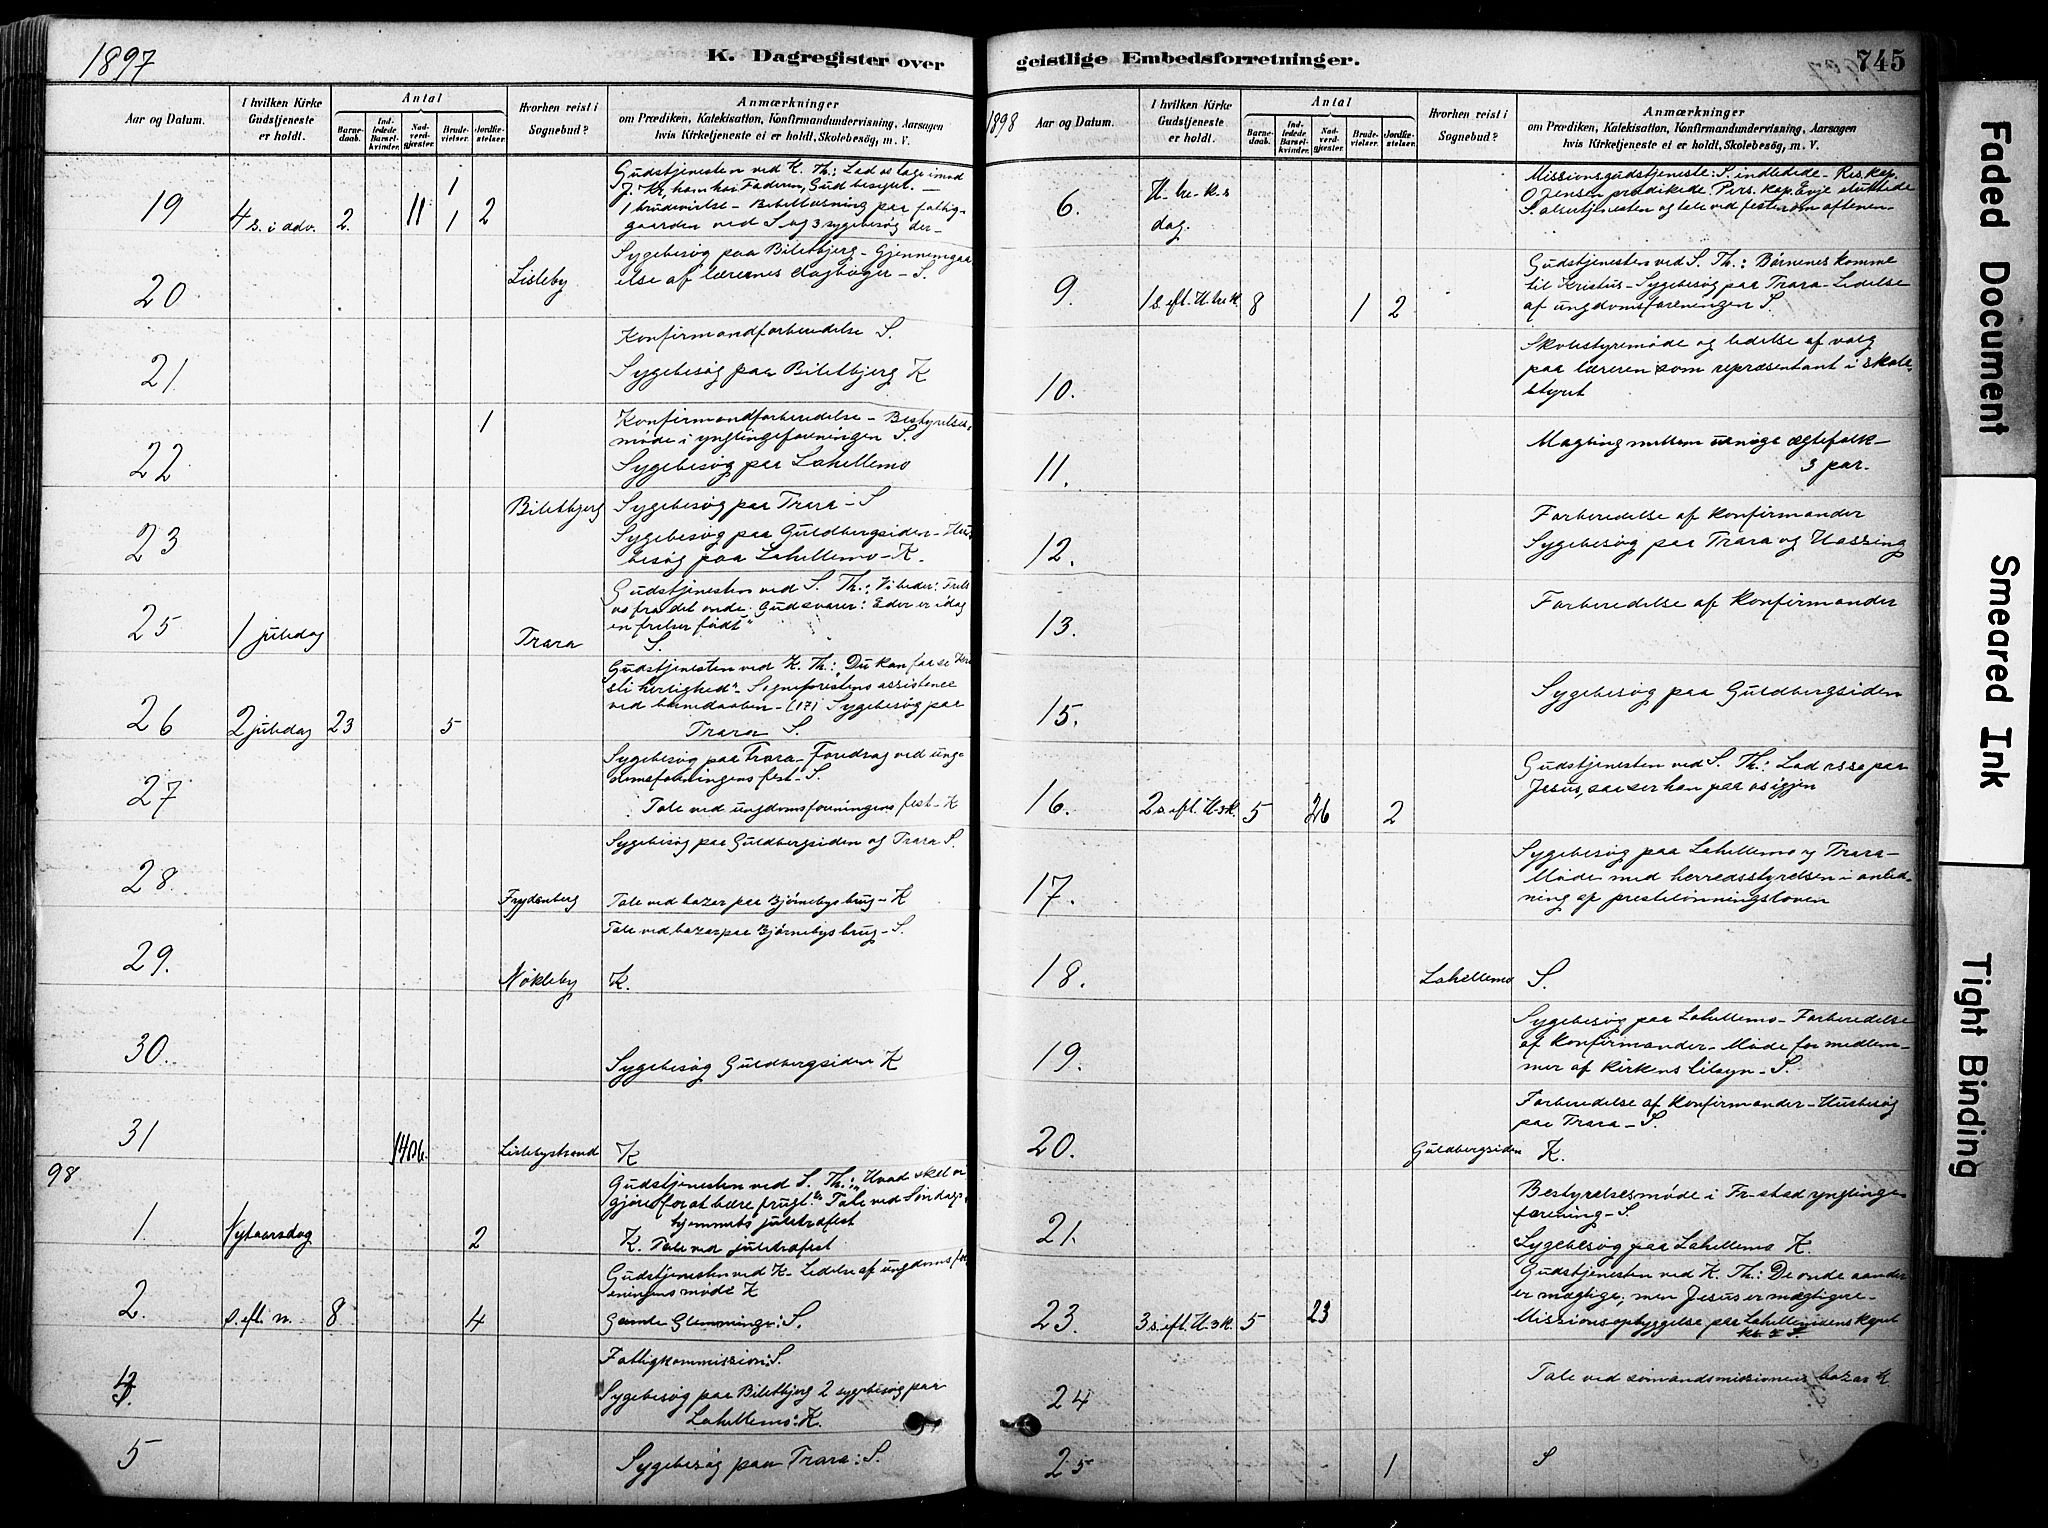 1897
K. Dagregister over
Aar og Datum.
I hvilken Kirke Gudstjeneste er holdt.
Antal
Barnedaab.
Indledede Barselkvinder.
Nadverdgjæster.
Brudevielser.
Jordfæstelser.
Hvorhen reist i Sognebud?
Anmærkninger
om Prædiken, Katekisation, Konfirmandundervisning, Aarsagen
hvis Kirketjeneste ei er holdt, Skolebesøg, m. V.
19 4 s. i adv. 2. 11 1 1 2
Gudstjenesten ved K. Th.: Lad os tage imod
J. Kr, ham har Faderen, Gud beseglet. —
1 brudevielse – Bibellæsning paa fattig-
gaarden ved S og 3 sygebesøg der –
20 Lisleby
Sygebesøg paa Biletbjerg – Gjennemgaa
else af lærernes dagbøger – S.
21.
Konfirmandforberedelse S.
Sygebesøg paa Biletbjerg K
22 1
Konfirmandforberedelse – Bestyrelses-
møde i ynglingeforeningen S.
Sygebesøg paa Lahellemo
23 Biletbjerg
Sygebesøg paa Trara – S
Sygebesøg paa Guldbergsiden – Hus
besøg paa Lahellemo – K.
25 1 juledag Trara
Gudstjenesten ved S. Th.: Vi beder: Frels
os fra det onde. Gud svarer: Eder er idag
en frelser født"
S.
26 2 juledag 23 5
Gudstjenesten ved K. Th.: Du kan faa se
sti herlighed". Sogneprestens assistence
ved barnedaaben – (17) Sygebesøg paa
Trara S.
27
Sygebesøg paa Trara – Foredrag ved ung-
domsforeningens fest – S.
Tale ved ungdomsforeningens fest – K
28. Frydenberg
Sygebesøg paa Guldbergsiden og Trara S.
Tale ved bazar paa Bjørnebys brug – K
29. Nøkleby
Tale ved bazar paa Bjørnebys brug – S.
K.
30.
Sygebesøg Guldbergsiden K
31 1406. Lislebystrand
K
98.
1. Nytaarsdag 2
Gudstjenesten ved S. Th.: „Hvad skal vi
gjøre for at bære frugt" Tale ved Søndags-
hjemmets juletræfest
K. Tale ved juletræfest
2. s. eft. n. 8 4
Gudstjenesten ved K – Ledelse af ungdomsfor
eningens møde K
Gamle Glemminge: S.
4
Fattigkommission: S.
Sygebesøg paa Biletbjerg 2 sygebesøg paa
Lahellemo: K.
5
Sygebesøg paa Trara: S.
geistlige Embedsforretninger.
745
1898
Aar og Datum.
I hvilken Kirke Gudstjeneste er holdt.
Antal
Barnedaab.
Indledede Barselkvinder.
Nadverdgjæster.
Brudevielser.
Jordfæstelser.
Hvorhen reist i Sognebud?
Anmærkninger
om Prædiken, Katekisation, Konfirmandundervisning, Aarsagen
hvis Kirketjeneste ei er holdt, Skolebesøg, m. V.
6. H. tre-k.s dag.
Missionsgudstjeneste: S. indledede – Res. kap.
O Jensen prædikede. Pers. kap. Evje sluttede
S. altertjenesten og tale ved festen om aftenen –
9. 1 s. eft. H. tre k. 8 1 2
Gudstjenesten ved S. Th.: Børnenes komme
til Kristus – Sygebesøg paa Trara – Ledelse
af ungdomsforeningen S.
10.
Skolestyremøde og ledelse af valg
paa læreren som repræsentant i skole-
styret
11.
Mægling mellem uenige ægtefolk –
3 par.
12.
Forberedelse af konfirmander
Sygebesøg paa Trara og Hassing
13.
Forberedelse af konfirmander
15.
Sygebesøg paa Guldbergsiden
16. 2 s. eft. H. 3 K. 5 26 2
Gudstjenesten ved S. Th.: Lad os se paa
Jesus, saa ser han paa os igjen
17.
Sygebesøg paa Lahellemo og Trara –
Møde med herredsstyrelsen i anled-
ning af prestelønningsloven
18. Lahellemo S.
19.
Sygebesøg paa Lahellemo – Forberedelse
af konfirmander – Møde for medlem-
mer af kirkens tilsyn – S.
20. Guldbergsiden
Forberedelse af konfirmander – Husbesøg
paa Trara – S.
K.
21.
Bestyrelsesmøde i Fr.stad ynglinge-
forening – S.
Sygebesøg paa Lahellemo K.
23. 3 s. eft. H. 3 K. 5 23
Gudstjenesten ved K. Th.: De onde aander
er mægtige, men Jesus er mægtigere –
Missionsopbyggelse paa
24
Tale ved sømandsmissionens bazar K
25 1 S
Faded Document
Smeared Ink
Tight Binding